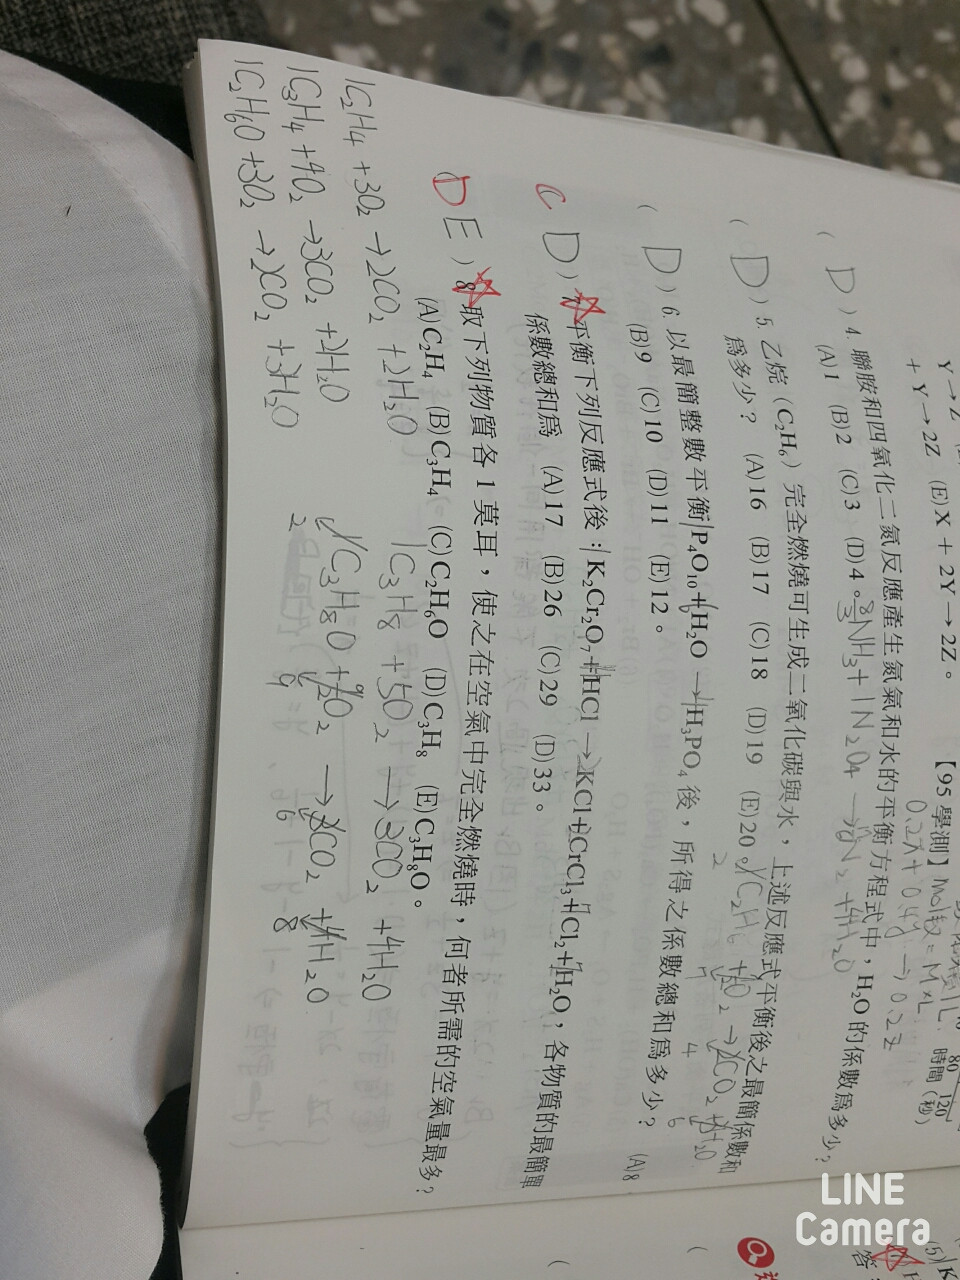 Y→Z
+ Y→2Z (E)X + 2Y→2Z。
【95 學測】
80 120
時間(秒)
mol數 = M×L
0.2x + 0.4y → 0.2z
( D ) 4. 聯胺和四氧化二氮反應產生氮氣和水的平衡方程式中,H₂O 的係數為多少?
(A)1 (B)2 (C)3 (D)4。
NH₃ + 1N₂O₄ → N₂ + 4H₂O
( D ) 5. 乙烷(C₂H₆)完全燃燒可生成二氧化碳與水,上述反應式平衡後之最簡係數和
為多少? (A)16 (B)17 (C)18 (D)19 (E)20。
C₂H₆ + O₂ → CO₂ + H₂O
2 7 4 6
( D ) 6. 以最簡整數平衡 P₄O₁₀ + H₂O → H₃PO₄ 後,所得之係數總和為多少? (A)8
(B)9 (C)10 (D)11 (E)12。
C D ) 7. 平衡下列反應式後:K₂Cr₂O₇ + HCl → KCl + CrCl₃ + Cl₂ + H₂O,各物質的最簡單
係數總和為 (A)17 (B)26 (C)29 (D)33。
D E ) 8. 取下列物質各 1 莫耳,使之在空氣中完全燃燒時,何者所需的空氣量最多?
(A)C₂H₄ (B)C₃H₄ (C)C₂H₆O (D)C₃H₈ (E)C₃H₈O。
1C₂H₄ + 3O₂ → 2CO₂ + 2H₂O
1C₃H₈ + 5O₂ → 3CO₂ + 4H₂O
1C₃H₄ + 4O₂ → 3CO₂ + 2H₂O
C₃H₈O + O₂ → CO₂ + H₂O
2 9 6 8
1C₂H₆O + 3O₂ → 2CO₂ + 3H₂O
(5) K
答:
LINE
Camera